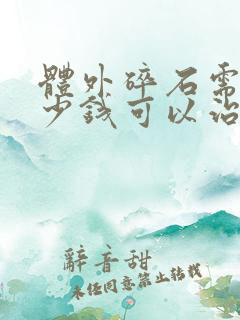 體外碎石需
少錢可以治
辭音甜
未经同意禁止转载